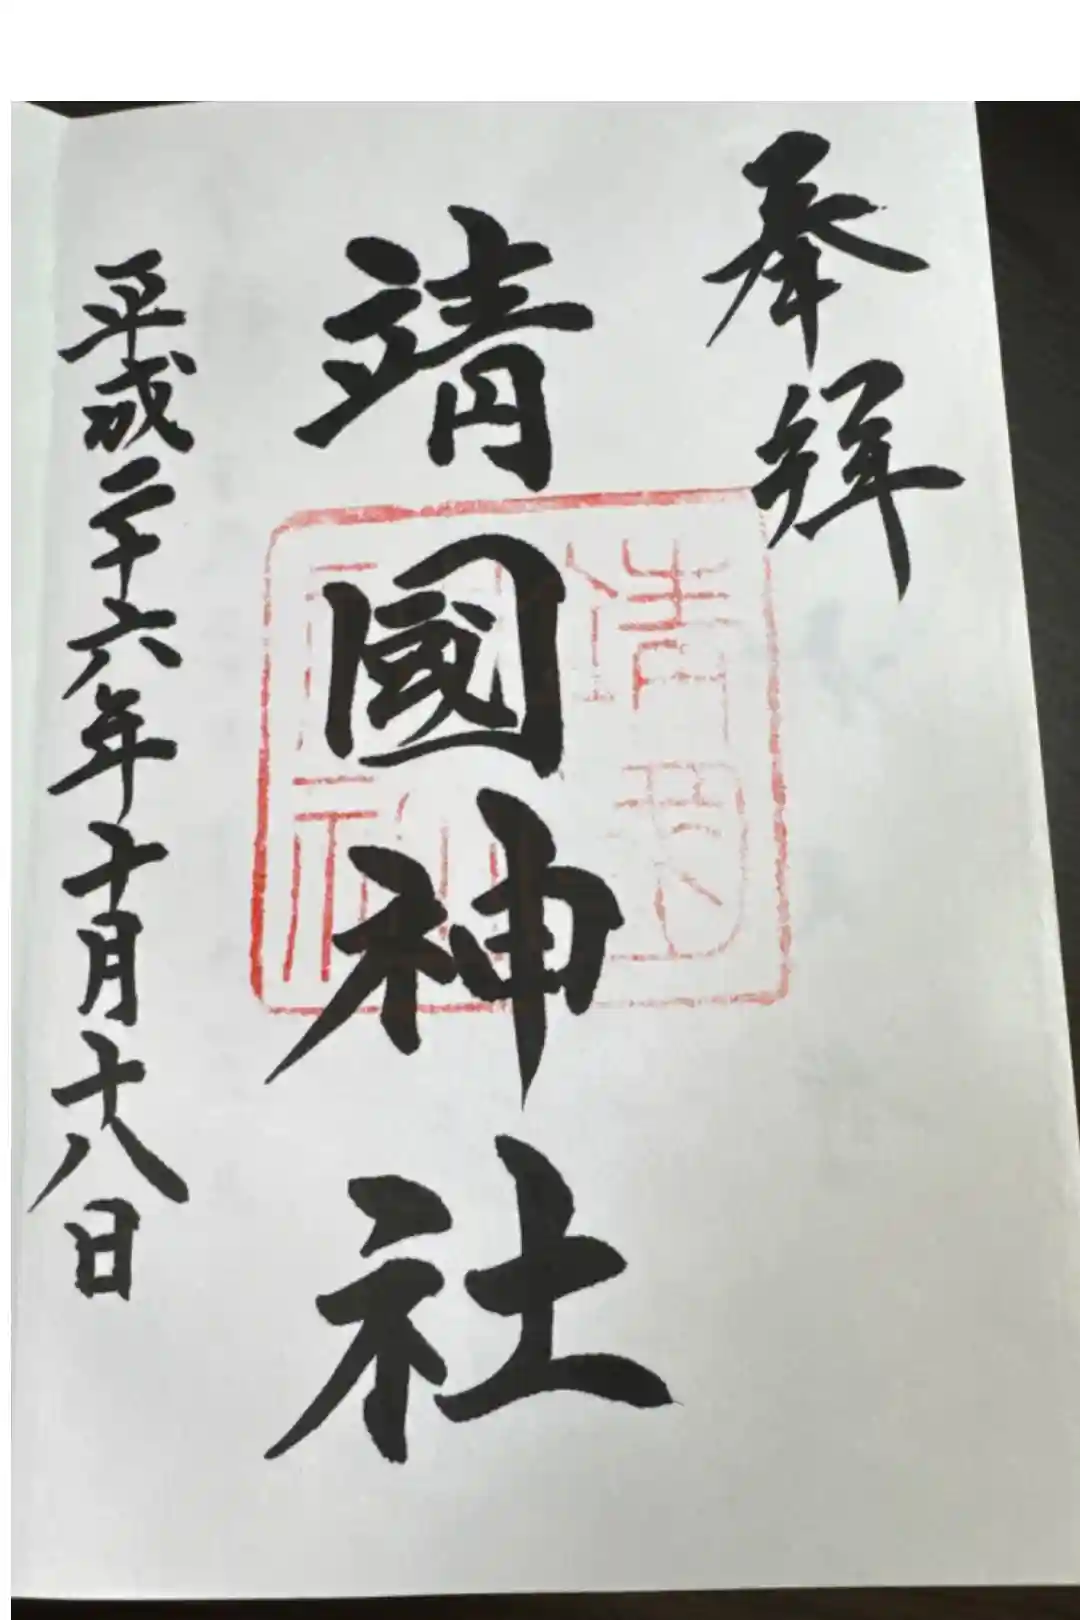 奉拝
靖國神社
平成二十六年十月十八日
靖國
神社